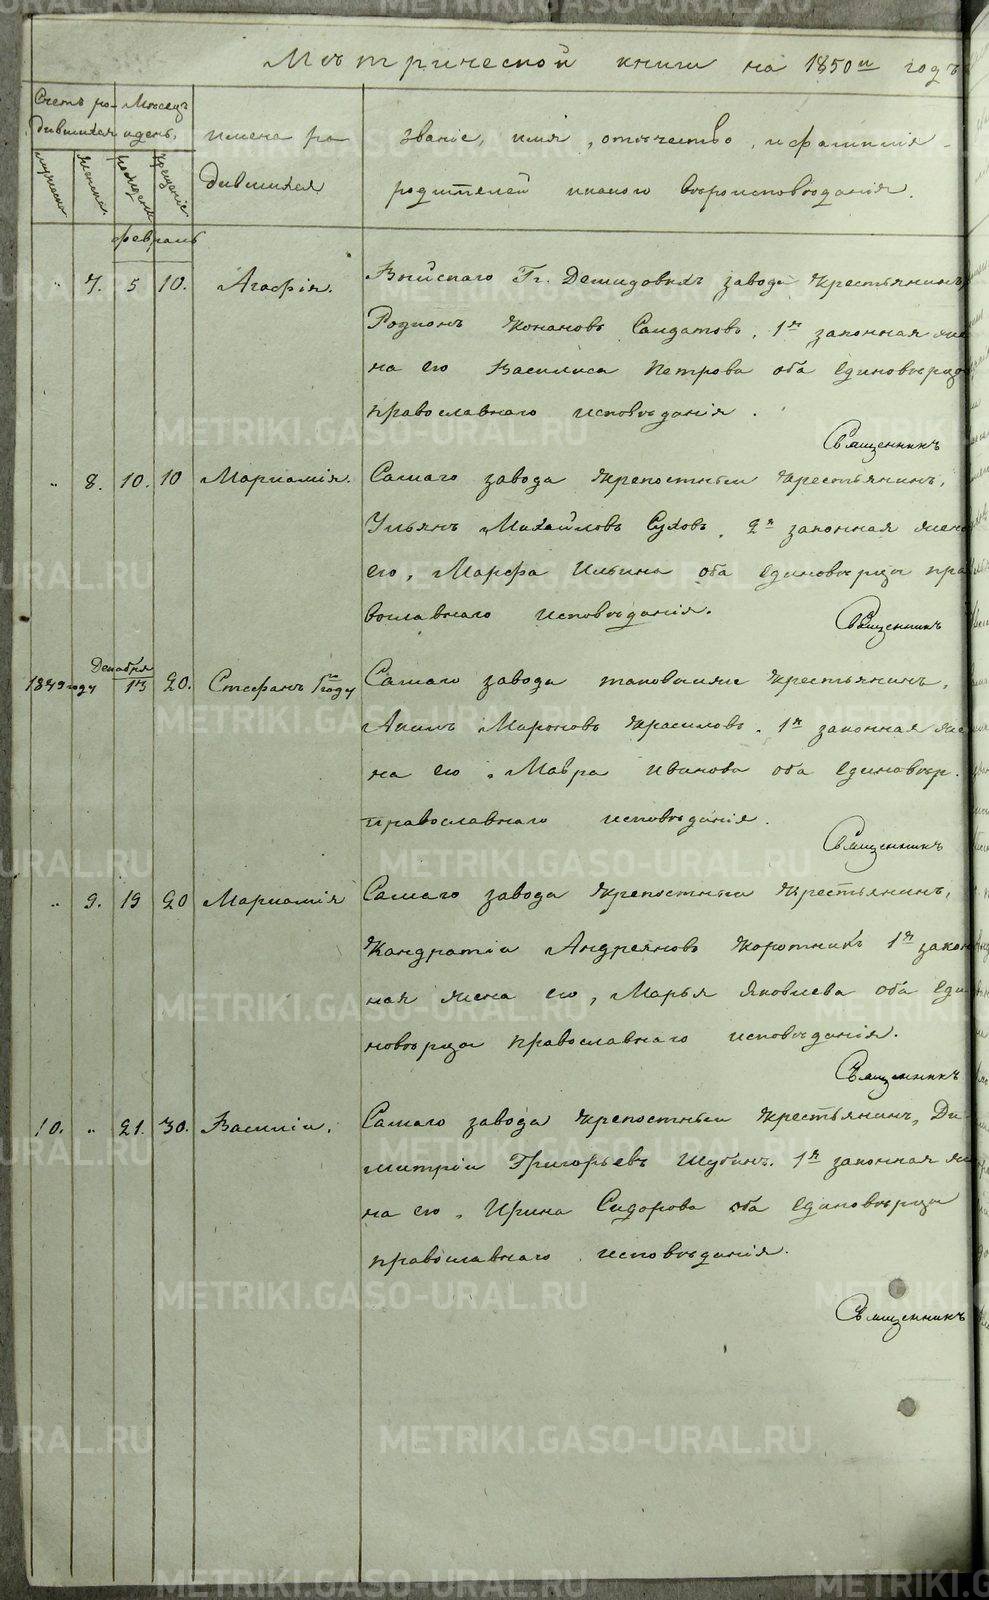 Метрической книги на 1850й годъ
Счетъ ро- Месецъ
дившихся идень,
имена ро
дившихся
званіе, имя, отечество, ифамилія
родителей икакого вероисповѣданія.
мужеска женска рожденія крещеніе
февраль
" 7. 5 10. Агафія.
Выйскаго Гг. Демидовыхъ завода крестьянинъ,
Родіонъ Конановъ Солдатовъ, 1я законная же
на его Василиса Петрова оба единоверцы
православнаго исповѣданія.
Священникъ
" 8. 10. 10 Мариамія.
Самаго завода крепостныи крестьянинъ,
Ульянъ Михаиловъ Суховъ, 2я законная жена
его, Марфа Ильина оба единоверцы пра
вославнаго исповѣданія.
Священникъ
1849 году Декабря 13 20. Стефанъ Гго году
Самаго завода таковыиже крестьянинъ,
Акимъ Мироновъ Красиловъ. 1я законная же
на его, Мавра Иванова оба единовер.
православнаго исповѣданія.
Священникъ
" 9. 19 20 Мариамія
Самаго завода крепостныи крестьянинъ,
Кандратіи Андреяновъ Коротникъ 1я закон
ная жена его, Марья Яковлева оба еди
новѣрцы православнаго исповѣданія.
Священникъ
10. " 21. 30. Василіи.
Самаго завода крепостныи крестьянинъ, Ди
митріи Григорьевъ Шубинъ. 1я законная же
на его, Ирина Сидорова оба единовѣрцы
православнаго исповѣданія.
Священникъ
METRIKI.GASO-URAL.RU